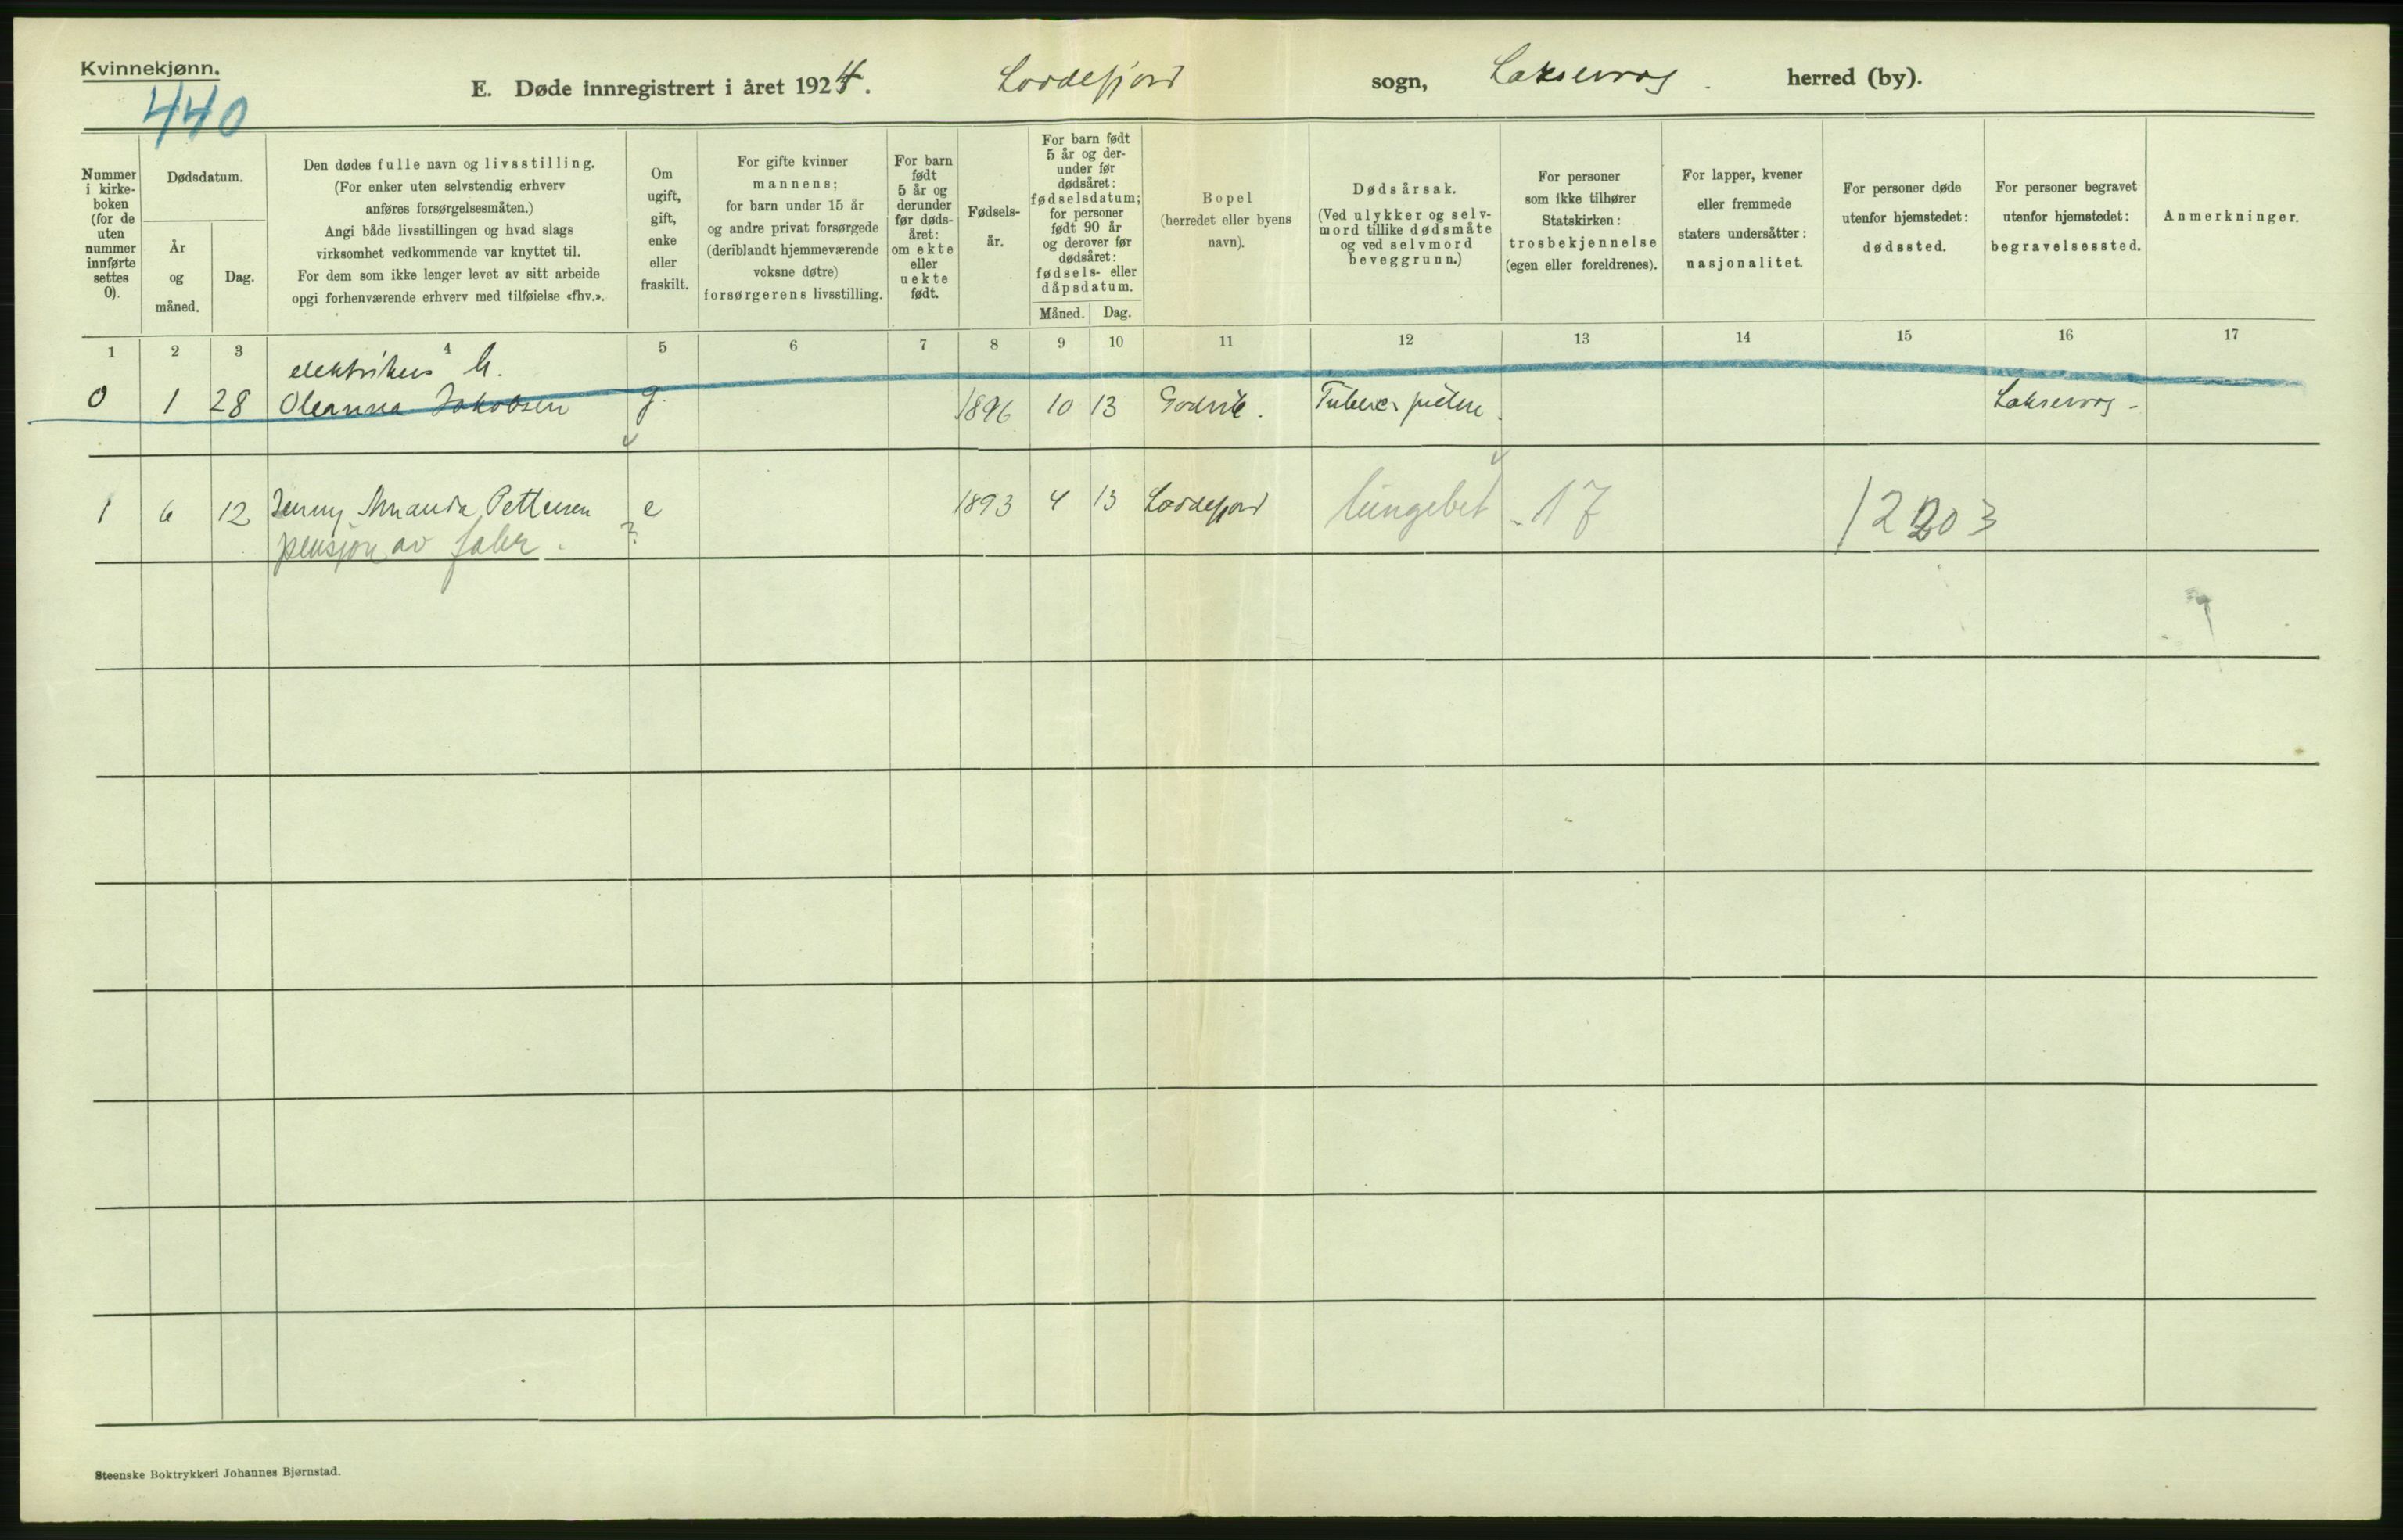 Kvinnekjønn.
440
E. Døde innregistrert i året 1924. Loddefjord sogn, Laksevaag. herred (by).
Nummer i kirke- boken (for de uten nummer innførte settes 0).
Dødsdatum.
År og måned.
Dag.
Den dødes fulle navn og livsstilling.
(For enker uten selvstendig erhverv
anføres forsørgelsesmåten.)
Angi både livsstillingen og hvad slags
virksomhet vedkommende var knyttet til.
For dem som ikke lenger levet av sitt arbeide
opgi forhenværende erhverv med tilføielse «fhv.».
Om ugift, gift, enke eller fraskilt.
For gifte kvinner
mannens;
for barn under 15 år
og andre privat forsørgede
(deriblandt hjemmeværende
voksne døtre)
forsørgerens livsstilling.
For barn født 5 år og derunder før døds- året: om ekte eller uekte født.
Fødsels- år.
For barn født
5 år og der-
under før
dødsåret:
fødselsdatum;
for personer
født 90 år
og derover før
dødsåret:
fødsels- eller
dåpsdatum.
Måned. Dag.
Bopel
(herredet eller byens
navn).
Dødsårsak.
(Ved ulykker og selv-
mord tillike dødsmåte
og ved selvmord
beveggrunn.)
For personer
som ikke tilhører
Statskirken:
trosbekjennelse
(egen eller foreldrenes).
For lapper, kvener
eller fremmede
staters undersåtter:
nasjonalitet.
For personer døde
utenfor hjemstedet:
dødssted.
For personer begravet
utenfor hjemstedet:
begravelsessted.
Anmerkninger.
1 2 3 4 5 6 7 8 9 10 11 12 13 14 15 16 17
elektrikers h.
0 1 28 Oleanna Jakobsen g. 1896 10 13 Godvik. Laksevaag -
1 6 12 Jenny Amanda Pettersen e 1893 4 13 Loddefjord lungebet. 17 12203
pensjon av fater. ?
Steenske Boktrykkeri Johannes Bjørnstad.